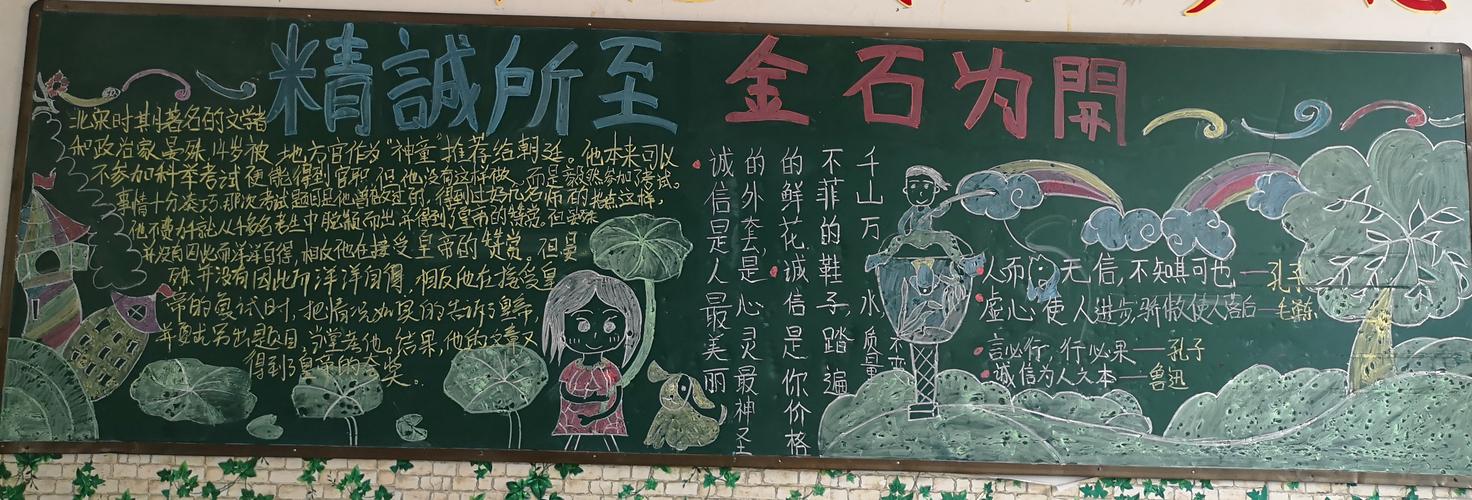 精誠所至 金石为開
北宋时期著名的文学者
和政治家晏殊,14岁被 地方官作为"神童"推荐给朝廷。他本来可以
不参加科举考试便能得到官职,但他没有这样做,而是毅然参加了考试。
事情十分凑巧,那次考试题目是他曾做过的,得到过好几名师的 这样,
他不费力就从 多名考生中脱颖而出,并得到了皇帝的赞赏。但晏殊
并没有因此而洋洋自得,相反他在接受皇帝的赞赏。但晏
殊并没有因此而洋洋自得,相反他在接受皇
帝的复试时,把情况如实的告诉了皇帝
并要求另出题目,当堂考他。结果,他的文章又
得到了皇帝的夸奖。
诚信是人最美丽
的外套是心灵最神圣
的鲜花 诚信是你价格
不菲的鞋子,踏遍
千山万水 质量
不变
人而无信,不知其可也——孔子
虚心使人进步,骄傲使人落后——毛泽东
言必行,行必果——孔子
诚信为人之本——鲁迅